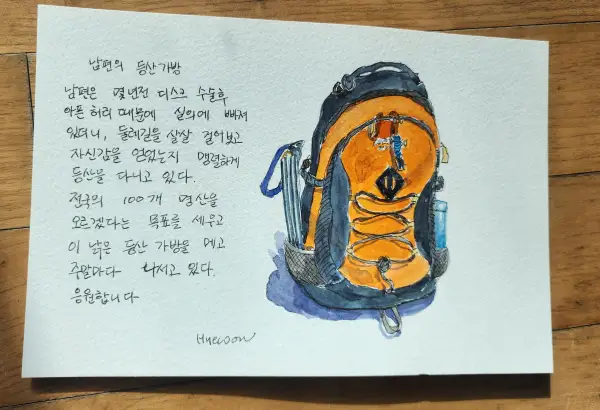 남편의 등산가방
남편은 몇년전 디스크 수술후
아픈 허리 때문에 실의에 빠져
있더니, 둘레길을 살살 걸어보고
자신감을 얻었는지 맹렬하게
등산을 다니고 있다.
전국의 100개 명산을
오르겠다는 목표를 세우고
이 낡은 등산 가방을 메고
주말마다 나서고 있다.
응원합니다